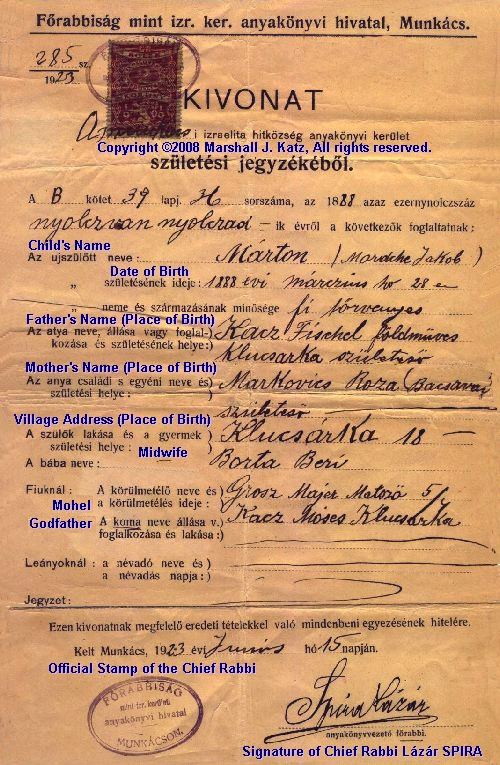 Főrabbiság mint izr. ker. anyakönyvi hivatal, Munkács.
285 sz.
1923
FŐRABBISÁG
KIVONAT
i izraelita hitközség anyakönyvi kerület
Copyright ©2008 Marshall J. Katz, All rights reserved.
születési jegyzékéből.
A B kötet 39 lapj. 36 sorszáma, az 1888 azaz ezernyolczszáz
nyolczvan nyolczad – ik évről a következők foglaltatnak:
Child's Name
Az ujszülött neve: Márton (Mordche Jakob)
Date of Birth
„ születésének ideje: 1888 évi márczius hó 28 én
„ neme és származásának minősége fi törvényes
Father's Name (Place of Birth)
Az atya neve, állása vagy foglal-) Kacz Fischel földmüves
kozása és születésének helye:) Klucsarka születésű
Mother's Name (Place of Birth)
Az anya családi s egyéni neve és) Markovics Roza
születési helye:) születésű
Village Address (Place of Birth)
A szülők lakása és a gyermek) Klucsárka 18 —
születési helye:)
Midwife
A bába neve: Borta Beri
Fiuknál: A körülmetélő neve és) Grosz Majer
a körülmetélés ideje:) 5/4
Mohel
Godfather
A koma neve állása v.) Kacz Moses Klucsárka
foglalkozása és lakása:)
Leányoknál: a névadó neve és)
a névadás napja:)
Jegyzet:
Ezen kivonatnak megfelelő eredeti tételekkel való mindenbeni egyezésének hitelére.
Kelt Munkács, 1923 évi Junius hó 15 napján.
Official Stamp of the Chief Rabbi
FŐRABBISÁG
mint izr. kerületi
anyakönyvi hivatal
MUNKÁCSON.
Spira Lázár
anyakönyvvezető főrabbi.
Signature of Chief Rabbi Lázár SPIRA